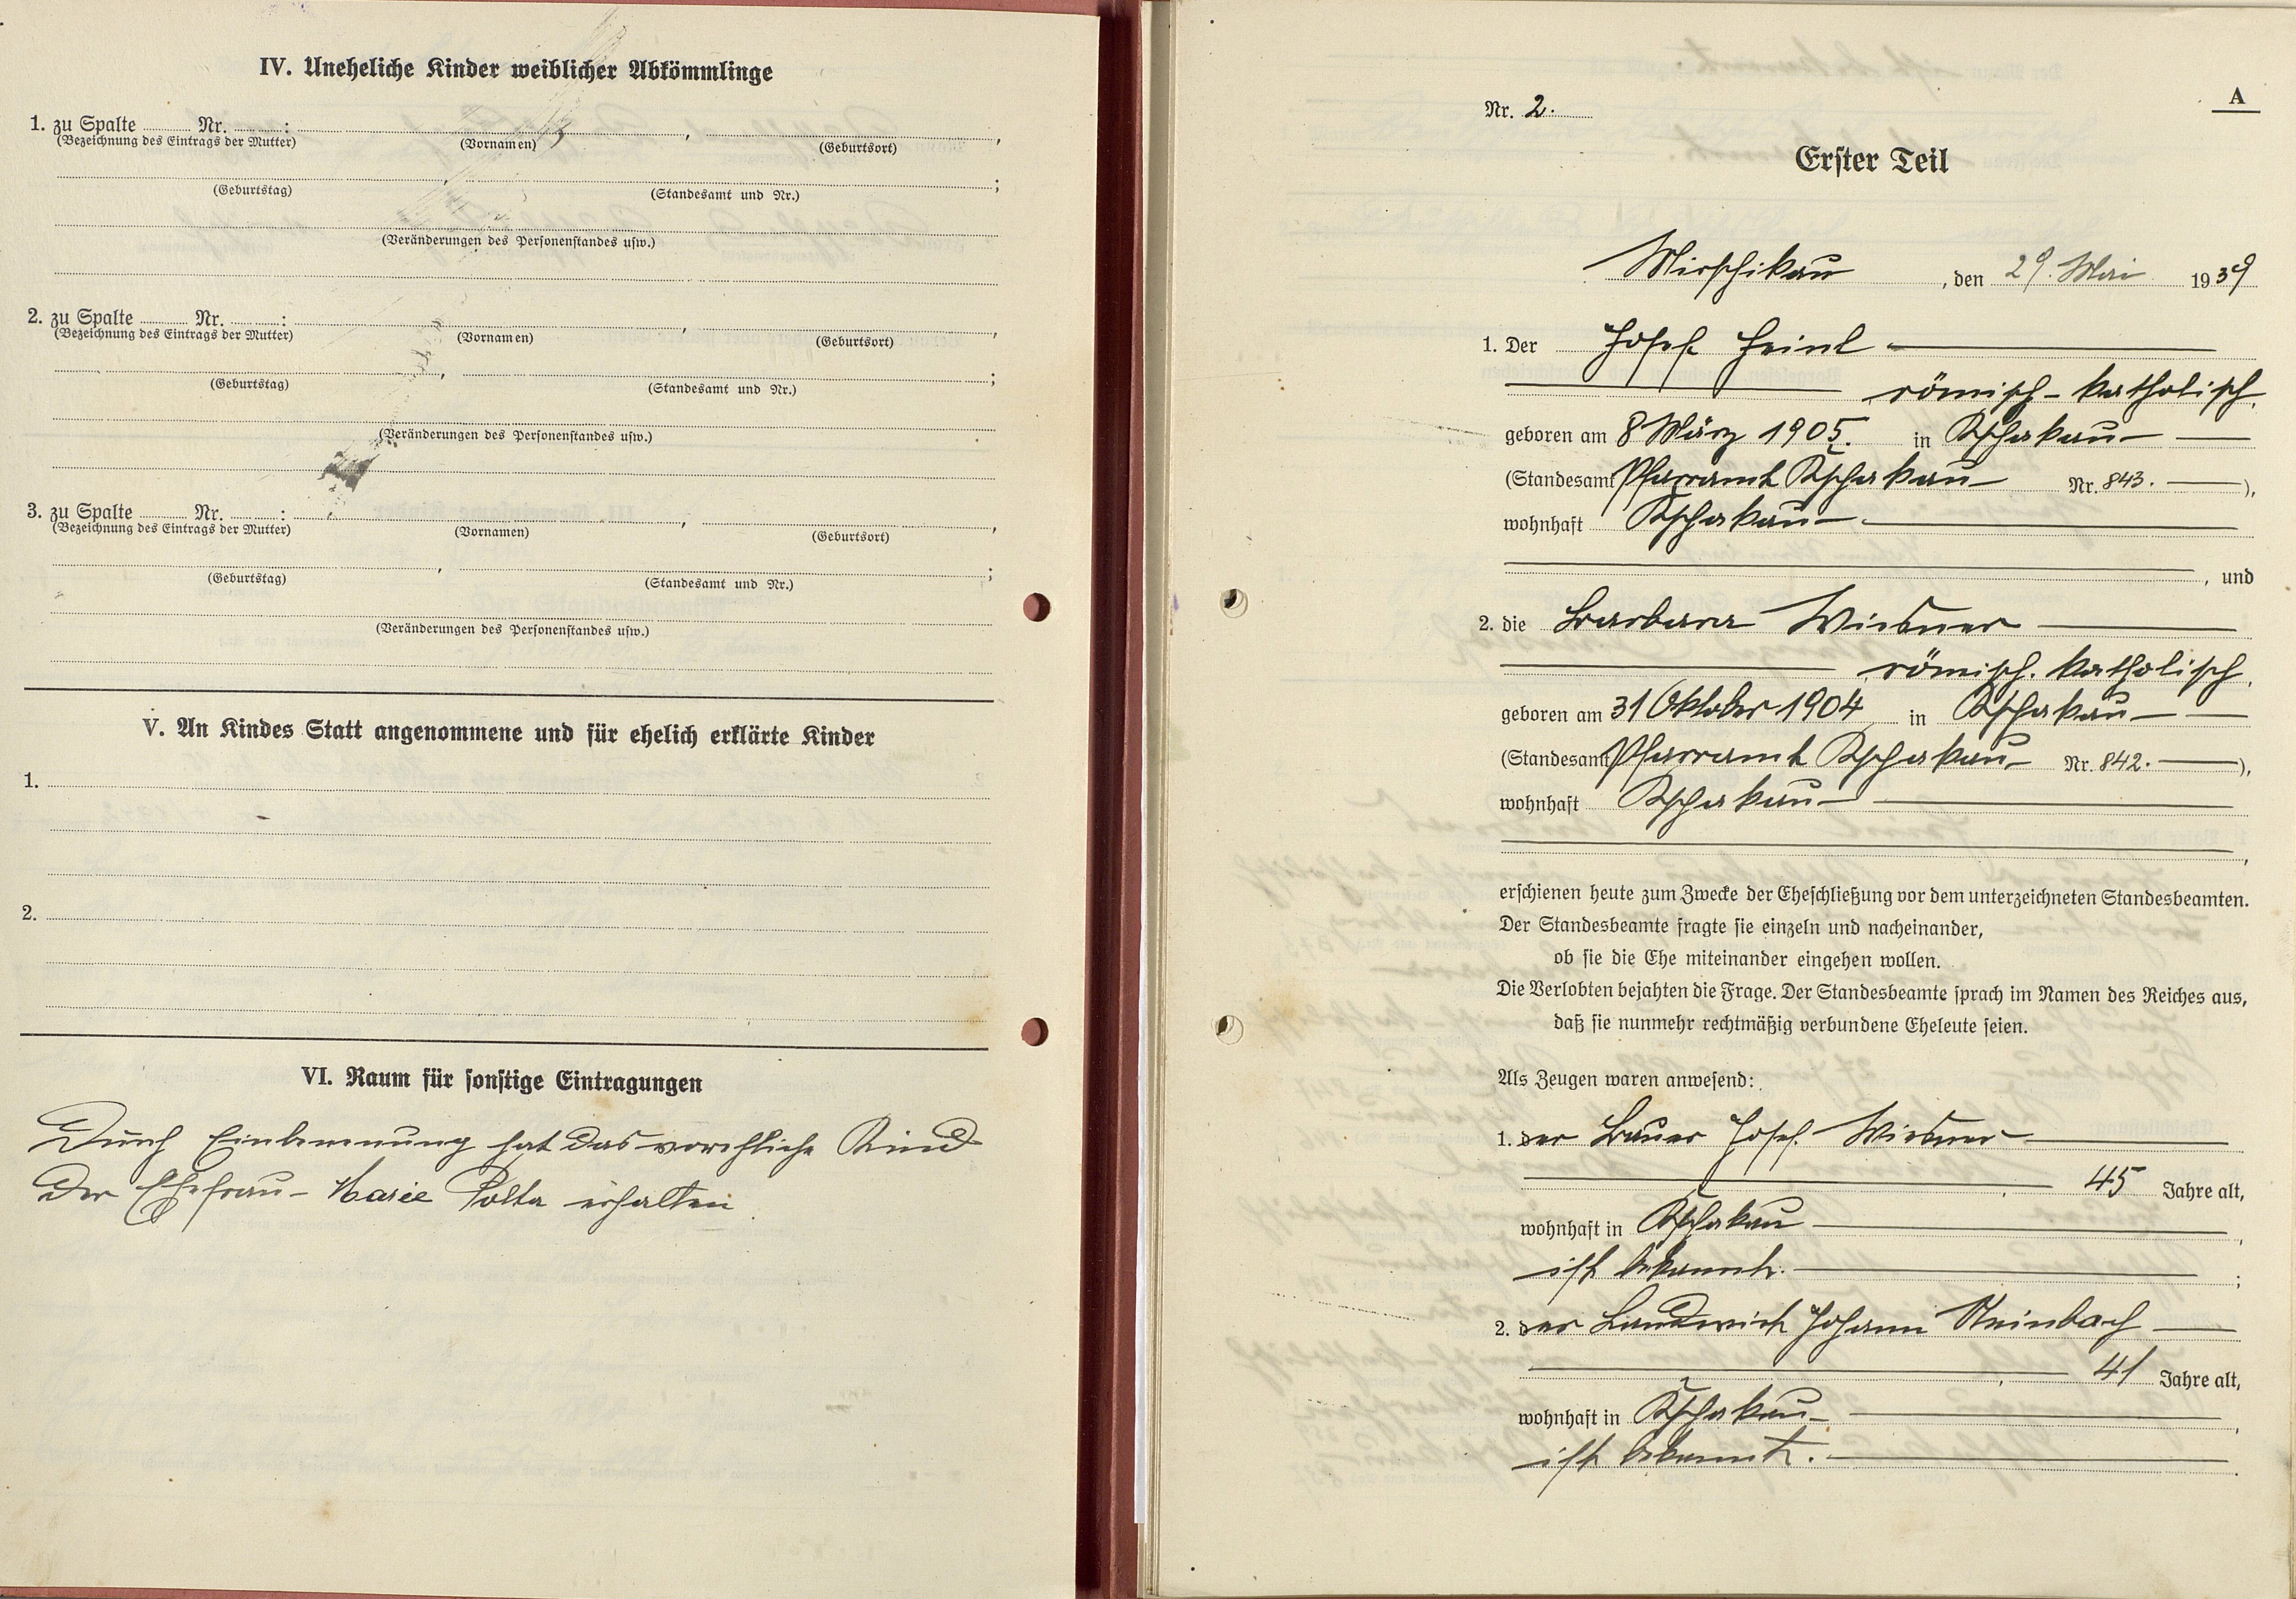 IV. Uneheliche Kinder weiblicher Abkömmlinge
1. zu Spalte ........ Nr. ........: , ,
(Bezeichnung des Eintrags der Mutter) (Vornamen) (Geburtsort)
, ;
(Geburtstag) (Standesamt und Nr.)
(Veränderungen des Personenstandes usw.)
2. zu Spalte ........ Nr. ........: , ,
(Bezeichnung des Eintrags der Mutter) (Vornamen) (Geburtsort)
, ;
(Geburtstag) (Standesamt und Nr.)
(Veränderungen des Personenstandes usw.)
3. zu Spalte ........ Nr. ........: , ,
(Bezeichnung des Eintrags der Mutter) (Vornamen) (Geburtsort)
, ;
(Geburtstag) (Standesamt und Nr.)
(Veränderungen des Personenstandes usw.)
V. An Kindes Statt angenommene und für ehelich erklärte Kinder
1.
2.
VI. Raum für sonstige Eintragungen
Durch Einbennung hat das voreheliche Kind
der Ehefrau - Marie Polta erhalten
A
Nr. 2.
Erster Teil
Mirschikau, den 29. Mai 1939
1. Der Josef Heinl
römisch-katholisch,
geboren am 8 März 1905. in Kschakau
(Standesamt Pfarramt Kschakau Nr. 843. ),
wohnhaft Kschakau
, und
2. die Barbara Wiesner
römisch. katholisch,
geboren am 31 Oktober 1904 in Kschakau
(Standesamt Pfarramt Kschakau Nr. 842. ),
wohnhaft Kschakau
,
erschienen heute zum Zwecke der Eheschließung vor dem unterzeichneten Standesbeamten.
Der Standesbeamte fragte sie einzeln und nacheinander,
ob sie die Ehe miteinander eingehen wollen.
Die Verlobten bejahten die Frage. Der Standesbeamte sprach im Namen des Reiches aus,
daß sie nunmehr rechtmäßig verbundene Eheleute seien.
Als Zeugen waren anwesend:
1. der Bauer Josef Wiesner
, 45 Jahre alt,
wohnhaft in Kschakau ,
ist bekannt. ;
2. der Landwirt Johann Steinbach
, 41 Jahre alt,
wohnhaft in Kschakau ,
ist bekannt.